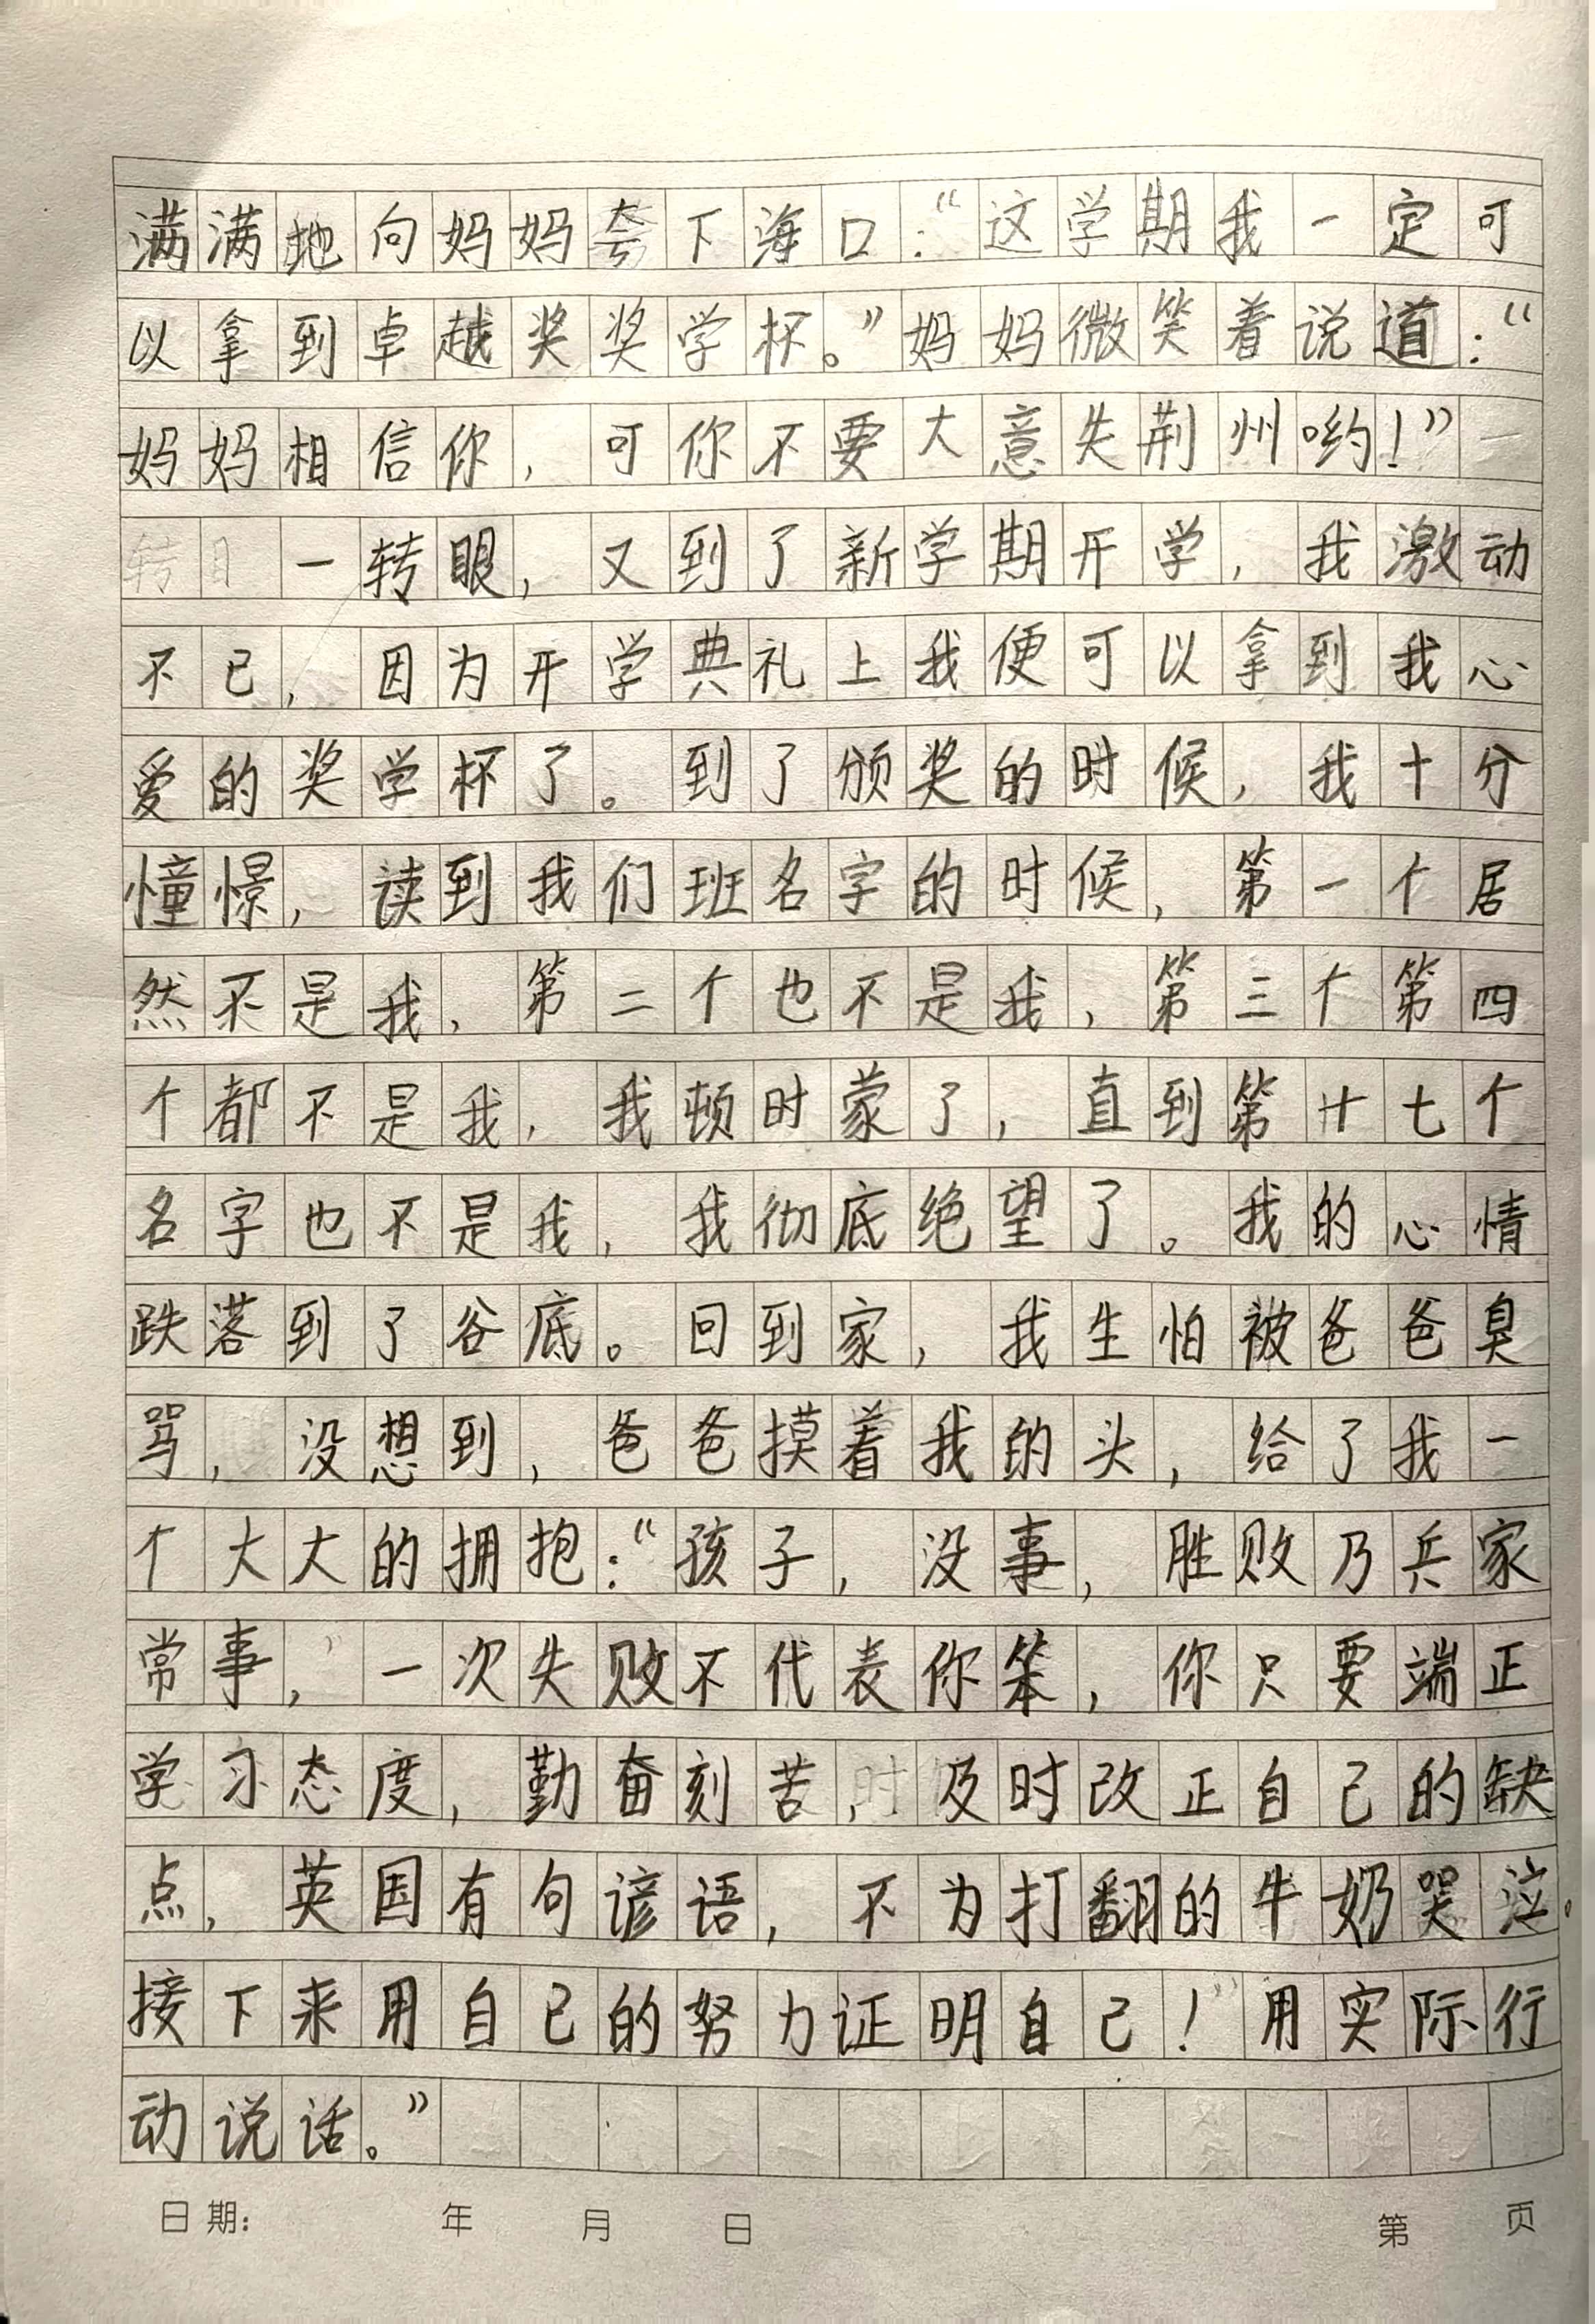 满满地向妈妈夸下海口：“这学期我一定可
以拿到卓越奖奖学杯。”妈妈微笑着说道：“
妈妈相信你，可你不要大意失荆州哟！”
一转眼，又到了新学期开学，我激动
不已，因为开学典礼上我便可以拿到我心
爱的奖学杯了。到了颁奖的时候，我十分
憧憬，读到我们班名字的时候，第一个居
然不是我，第二个也不是我，第三个第四
个都不是我，我顿时蒙了，直到第十七个
名字也不是我，我彻底绝望了。我的心情
跌落到了谷底。回到家，我生怕被爸爸臭
骂，没想到，爸爸摸着我的头，给了我一
个大大的拥抱：“孩子，没事，胜败乃兵家
常事，一次失败不代表你笨，你只要端正
学习态度，勤奋刻苦，及时改正自己的缺
点，英国有句谚语，不为打翻的牛奶哭泣。
接下来用自己的努力证明自己！用实际行
动说话。”
日期： 年 月 日 第 页